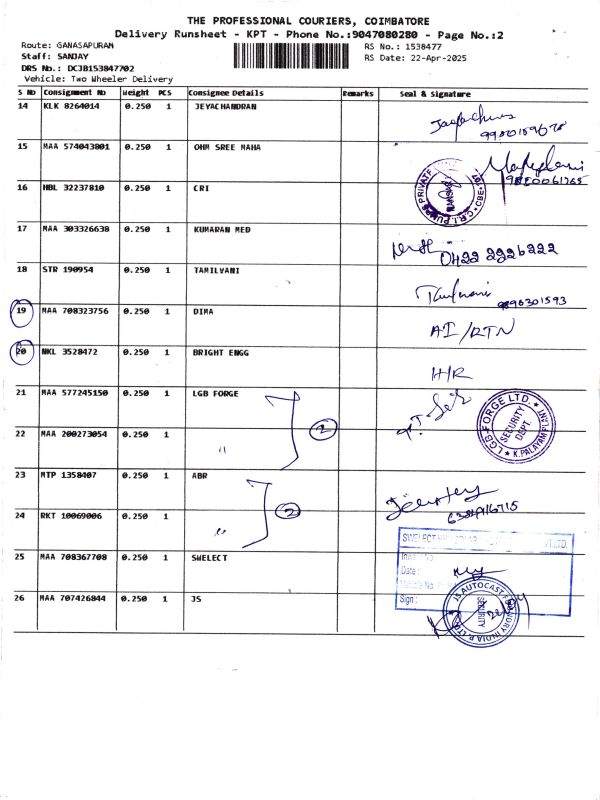 THE PROFESSIONAL COURIERS, COIMBATORE
Delivery Runsheet - KPT - Phone No.:9047080280 - Page No.:2
Route: GANASAPURAM
RS No.: 1538477
Staff: SANJAY
RS Date: 22-Apr-2025
DRS No.: DCJB153847702
Vehicle: Two Wheeler Delivery
S No Consignment No Weight PCS Consignee Details Remarks Seal & Signature
14 KLK 8264014 0.250 1 JEYACHANDRAN
15 MAA 574043801 0.250 1 OHM SREE MAHA
16 HBL 32237810 0.250 1 CRI
17 MAA 303326638 0.250 1 KUMARAN MED
0422 2926222
18 STR 190954 0.250 1 TAMILVANI
9896301593
19 MAA 708323756 0.250 1 DIMA
AI/RTN
20 NKL 3528472 0.250 1 BRIGHT ENGG
H/R
21 MAA 577245150 0.250 1 LGB FORGE
2
LGB FORGE LTD. SECURITY DEPT. K.PALAYAM PLANT
22 MAA 200273054 0.250 1 "
23 MTP 1358407 0.250 1 ABR
2
24 RKT 10069006 0.250 1 "
25 MAA 708367708 0.250 1 SWELECT
Date:
Sign:
26 MAA 707426844 0.250 1 JS
JS AUTOCAST FOUNDRY INDIA P. LTD SECURITY